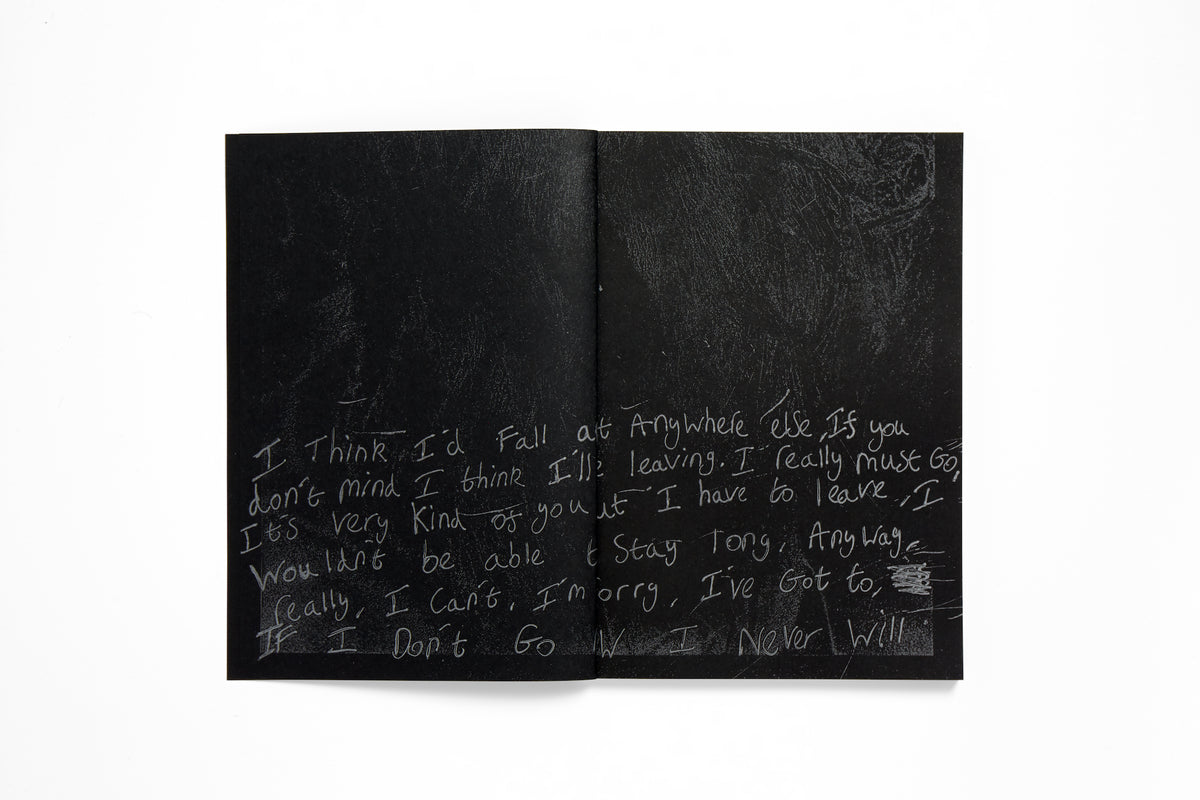 I Think I'd Fall at Anywhere else, If you
don't mind I think I'll leaving. I really must Go,
It's very Kind of you ut I have to leave, I
Wouldn't be able t Stay long, Anyway,
really, I Can't, I'm orry, I've Got to,
If I Don't Go W I Never Will